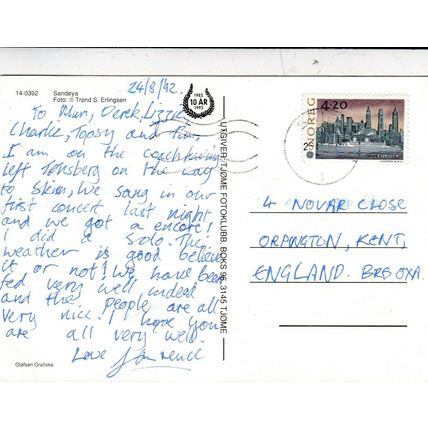 24/8/92.
14-0392 Sandøya
Foto: © Trond S. Erlingsen
To Mum, Derek, Lizzie
Charlie, Topsy and Tim,
I am on the coach having
left Tønsberg on the way
to Skien, We sang in our
first concert last night
and we got a encore!
I did a solo. The
weather is good believe
it or not! We have been
fed very well indeed
and the people are all
very nice. I hope you
are all very well.
Love Lawrence
Olafsen Grafiske
1982
10 ÅR
1992
UTGIVER: TJØME FOTOKLUBB, BOKS 96, 3145 TJØME
NOREG
4.20
EUROPA
4 NOVAR CLOSE
ORPINGTON, KENT,
ENGLAND. BR6 0XA.